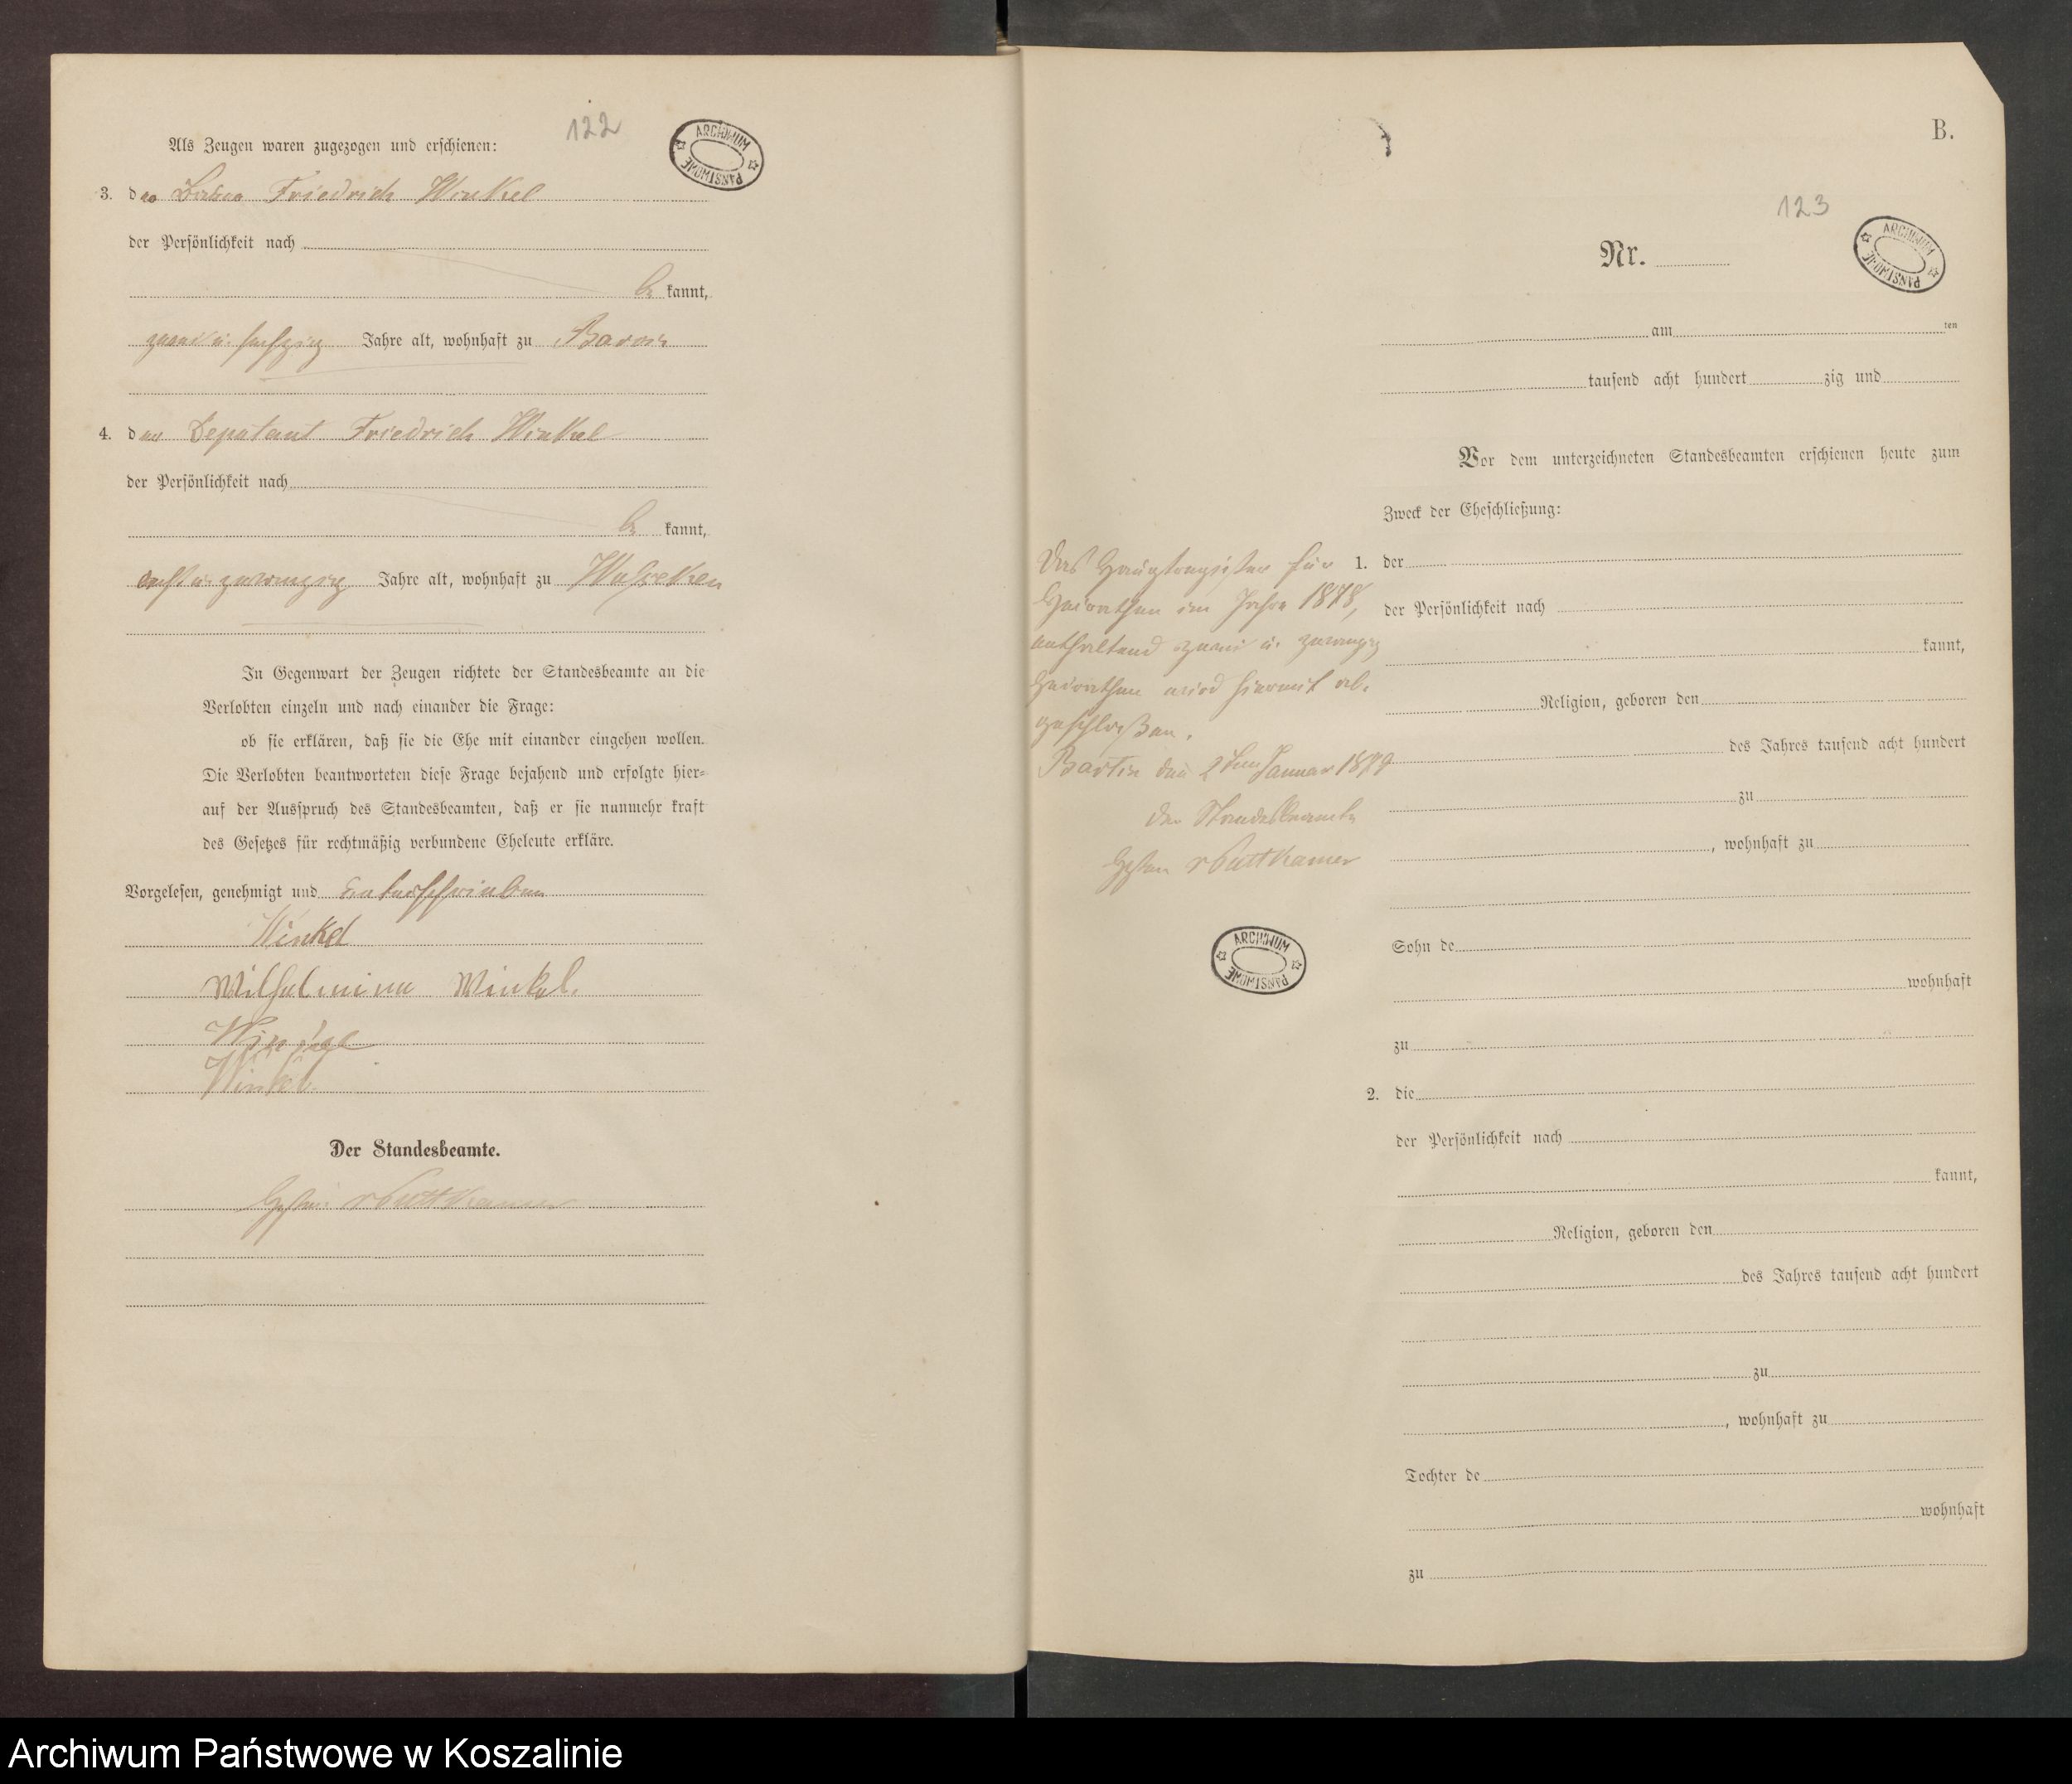 122
ARCHIWUM PAŃSTWOWE
Als Zeugen waren zugezogen und erschienen:
3. der Friedrich Winkel
der Persönlichkeit nach
be kannt,
zwei u. sechzig Jahre alt, wohnhaft zu
4. der Deputant Friedrich Winkel
der Persönlichkeit nach
be kannt,
acht u. zwanzig Jahre alt, wohnhaft zu
In Gegenwart der Zeugen richtete der Standesbeamte an die
Verlobten einzeln und nach einander die Frage:
ob sie erklären, daß sie die Ehe mit einander eingehen wollen.
Die Verlobten beantworteten diese Frage bejahend und erfolgte hier-
auf der Ausspruch des Standesbeamten, daß er sie nunmehr kraft
des Gesetzes für rechtmäßig verbundene Eheleute erkläre.
Vorgelesen, genehmigt und unterschrieben
Winkel
Wilhelmine Winkel.
Winkel
Winkel.
Der Standesbeamte.
v Puttkamer
B.
123
Nr.
ARCHIWUM PAŃSTWOWE
am ten
tausend acht hundert zig und
Vor dem unterzeichneten Standesbeamten erschienen heute zum
Zweck der Eheschließung:
Das Hauptregister für
Heirathen im Jahre 1878,
enthaltend zwei u. zwanzig
Heirathen wird hiermit ab-
geschloßen.
Bartin den 2ten Januar 1879
der Standesbeamte
v Puttkamer
ARCHIWUM PAŃSTWOWE
1. der
der Persönlichkeit nach
kannt,
Religion, geboren den
des Jahres tausend acht hundert
zu
, wohnhaft zu
Sohn de
wohnhaft
zu
2. die
der Persönlichkeit nach
kannt,
Religion, geboren den
des Jahres tausend acht hundert
zu
, wohnhaft zu
Tochter de
wohnhaft
zu
Archiwum Państwowe w Koszalinie